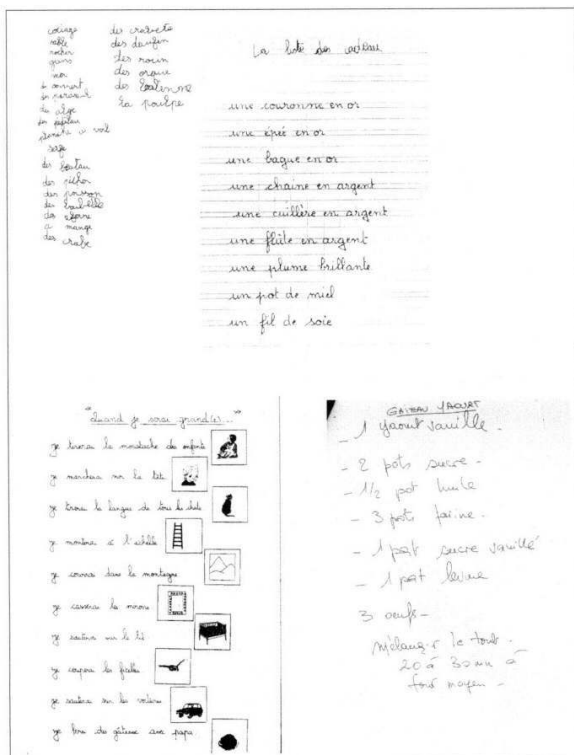 sable
rocher
noir
des poisson
a mange
des crabe
des crevete
des daufin
des requin
des orque
des baleinne
la poulpe
La liste des cadeaux
une couronne en or
une épée en or
une bague en or
une chaine en argent
une cuillère en argent
une flûte en argent
une plume brillante
un pot de miel
un fil de soie
"Quand je serai grand(e)..."
je tirerai la moustache des enfants
je marcherai sur la tête
je tirerai la langue de tous les chats
je monterai à l'échelle
je courrai dans la montagne
je casserai les miroirs
je sauterai sur le lit
je couperai les ficelles
je sauterai sur les voitures
je ferai des gâteaux avec papa
GATEAU YAOURT
- 1 yaourt vanille.
- 2 pots sucre -
- 1/2 pot huile
- 3 pots farine.
- 1 pqt sucre vanillé
- 1 pqt levure
3 oeufs -
mélanger le tout.
20 à 30 mn à
four moyen -